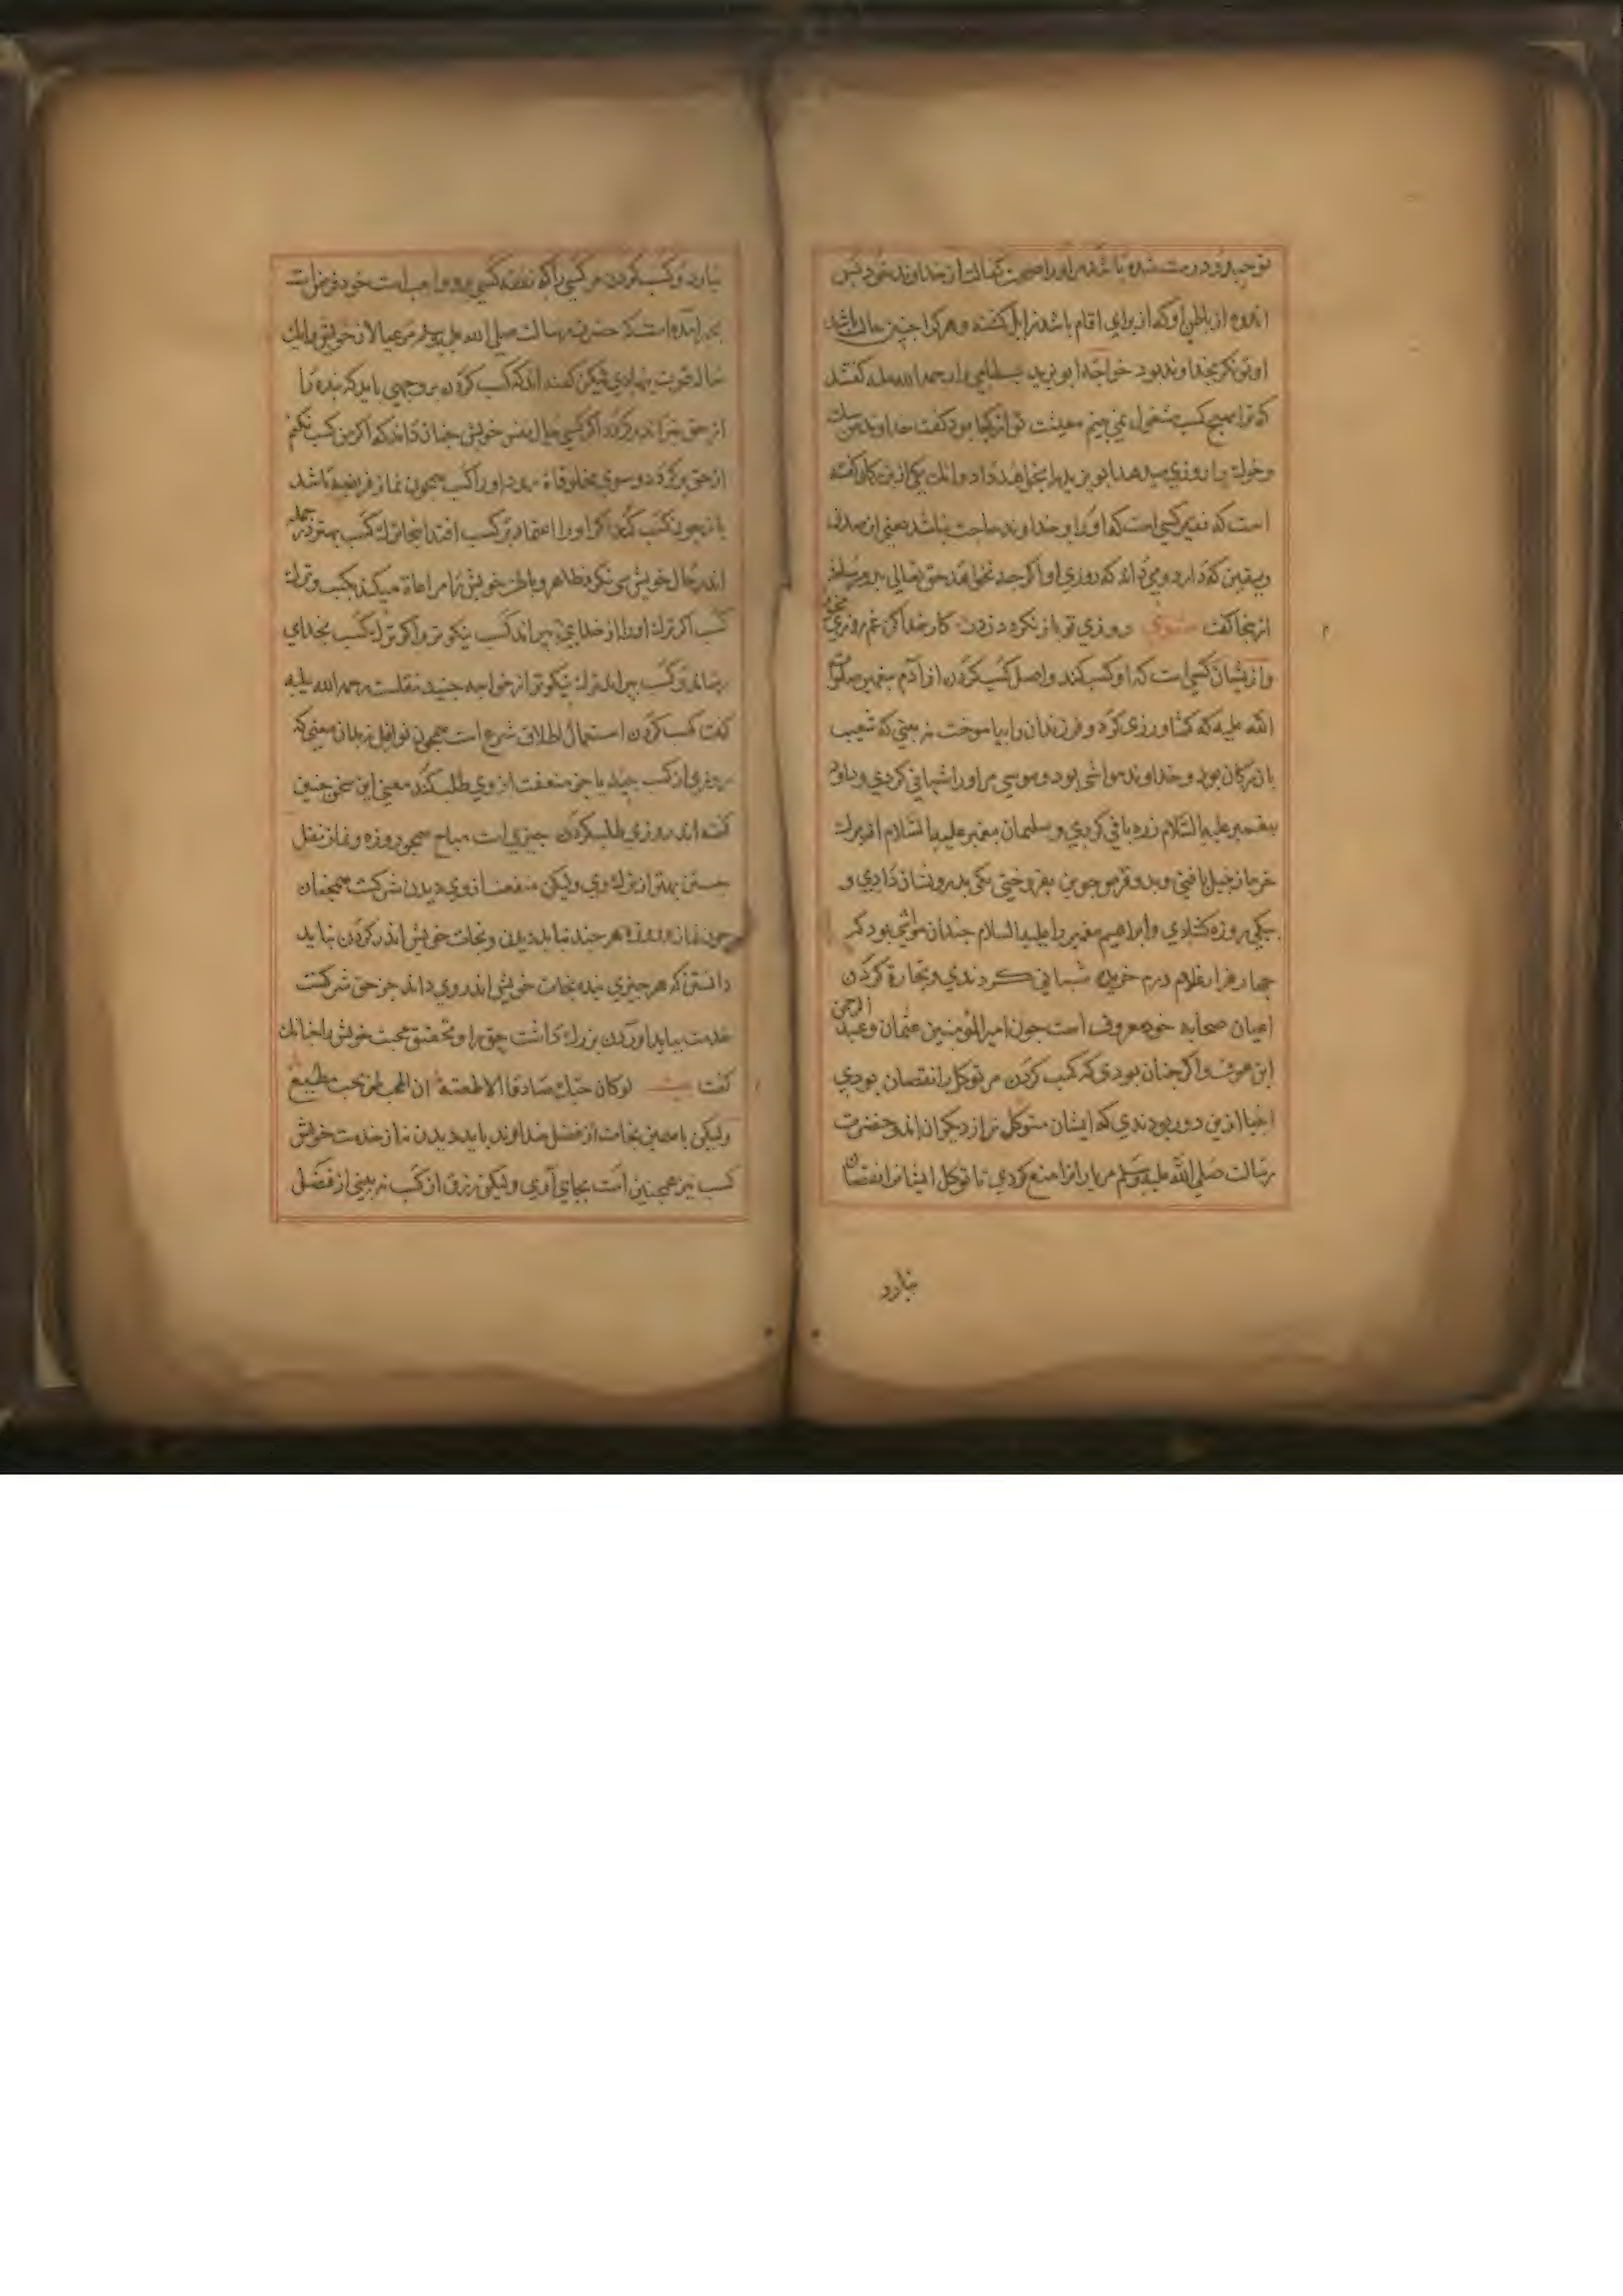 توحید او درست شده باشد مر او را صحت کفالت از خداوند خود پس
اندوه از باطن او که از برای اقام باشد زایل کشند و هر کرا چنین حال باشد
او تونکر بخداوند بود خواجه ابو یزید بسطامی را رحمه الله علیه کفتند
که ترا بهیچ کسب مشغول نمی بینم معیشت تو از کجا بود کفت خداوند من سک
و خوک را روزی میدهد ابو یزید را بخواهد داد و انک یکی ازین کلی کفته
است که فقیر کسی است که او را و خداوند حاجت نباشد یعنی این صدق
و یقین که دارد و می داند که روزی او اکر چه نخواهد حق تعالی برو رساند
از نجا کفت مثنوی روزی تو باز نکردد زدر کار خدا کن غم روزی مخور
و از یشان کسی است که او کسب کند و اصل کسب کردن از آدم پیغمبر صلوات
الله علیه که کشاورزی کرد و فرزندان را بیاموخت نه بینی که شعیب
بازرکان بود و خداوند مواشی بود و موسی مر او را شبانی کردی و داود
پیغمبر علیه السلام زره بافی کردی و سلیمان پیغمبر علیه السلام از برک
خرما زنبیل بافتی و بدو قرص جوین بفروختی یکی بدرویشان دادی و
بیکی روزه کشادی و ابراهیم پیغمبر را علیه السلام چندان مواشی بود کر
چهار هزار غلام درم خریده شبانی کردندی و تجارة کردن
اعیان صحابه خود معروف است چون امیر المومنین عثمان و عبد الرحمن
ابن عوف و اکر چنان بودی که کسب کردن مر توکل را نقصان بودی
انبیا ازین دور بودندی که ایشان متوکل تر از دیکران اند و حضرت
رسالت صلی الله علیه وسلم مر یارانرا منع کردی تا توکل ایشانرا نقصان
نیارد
نیارد و کسب کردن مر کسی را که نفقه کسی برو واجب است خود فرض است
بخبر آمده است که حضرت رسالت صلی الله علیه وسلم مر عیالان خویش را یک
ساله قوت بنهادی لیکن کفته اند که کسب کردن بر وجهی باید که بنده را
از حق نبراند و کرد اکر کسی حال نفس خویش چنان داند که اکر من کسب نکنم
از حق بر کردد و سوی مخلوقات رود او را کسب همچون نماز فریضه باشد
باز چون کسب کند اکر او را اعتماد بر کسب افتد انجا ترک کسب بهتر در جمله
اندر حال خویش می نکرد ظاهر و باطن خویش را مراعاة میکند بکسب و ترک
کسب اکر ترک او را از خدای ببراند کسب نیکو تر و اکر ترک کسب بخدای
رساند و کسب ببراند ترک نیکو تر از خواجه جنید نقلست رحمه الله علیه
کفت کسب کردن استعمال اطلاق شرع است همچون نوافل نه بدان معنی که
روزی از کسب بیند یا جز منفعت از وی طلب کند معنی این سخن چنین
کفته اند روزی طلب کردن چیزی است مباح همچو روزه و نماز نفل
جستن بهتر از ترک وی و لیکن منفعت از وی دیدن شرکت همچنان
چون نماز و روزه هر چند نباید دیدن و نجات خویش اندر کردن نباید
دانستن که هر چیزی بنده نجات خویش اندر وی داند جز حق شرکست
خدمت بباید آوردن بزرک داشت حق را و تحقیق محبت خویش را چنانک
کفت بیت لو کان حبک صادقا لاطعته ان المحب لمن یحب مطیع
ولیکن باری نجات از فضل خداوند باید دیدن نه از خدمت خویش
کسب نیز همچنین است بجای آوری و لیکن رزق از کسب نه بینی از فضل